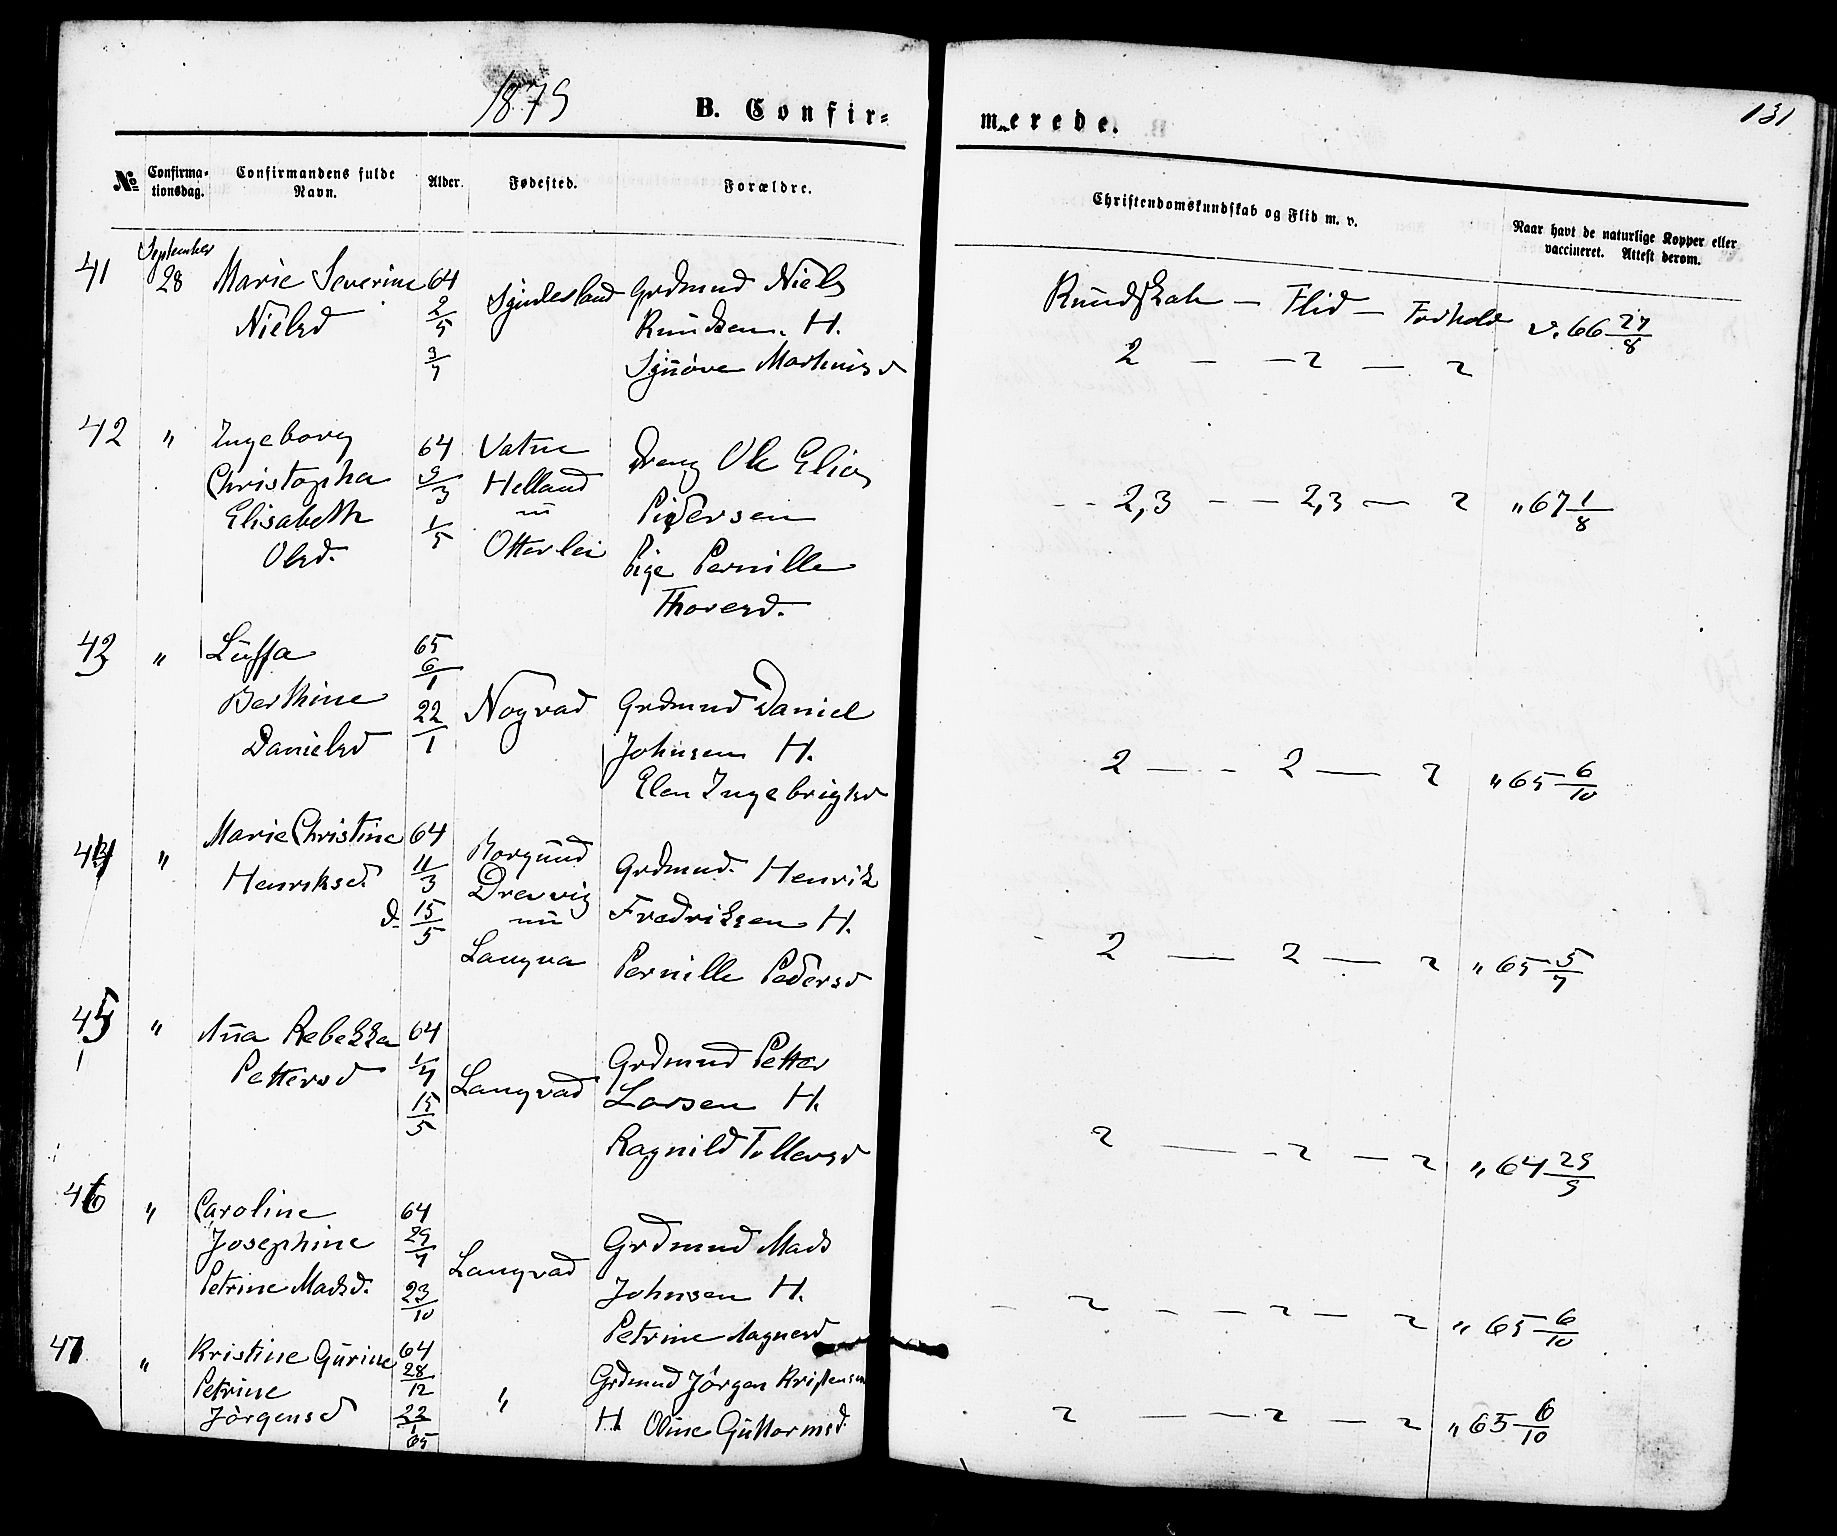 1879
B. Confir-
merede.
131
No
Confirma-
tionsdag.
Confirmandens fulde
Navn.
Alder.
Fødested.
Forældre.
Christendomskundskab og Flid m. v.
Naar havt de naturlige Kopper eller
vaccineret. Attest derom.
41
September
28
Marie Severine
Nielsd
64
2/5
3/7
Syndesland
Grdmnd Niels
Knudsen. H.
Synøve Marthinsd
Kundskab — Flid — Forhold
2 — — 2 — 2
v. 66 27/8
42
"
Ingeborg
Christopha
Elisabeth
Olsd.
64
9/3
1/5
Vatne
Helland
nu
Otterlei
Dreng Ole Elias
Pedersen
Pige Pernille
Thoresd.
- - 2,3 - - 2,3 — 2
" 67 1/8
43
"
Luffa
Berthine
Danielsd
65
6/1
22/1
Nogvad
Grdmnd Daniel
Johnsen H.
Elen Ingebrigtsd
2 — - 2 — 2
" 65 6/10
44
"
Marie Christine
Henriksd.
64
11/3
d. 15/5
Borgund
Drevvig
nu
Langva
Grdmnd. Henrik
Fredriksen H.
Pernille Pedersd
- 2 — 2 — 2
" 65 5/7
45
"
Ana Rebekka
Pettersd
64
1/4
15/5
Langvad
Grdmnd Petter
Larsen H.
Ragnild Tollevsd
2 — - 2 — 2
" 64 29/9
46
"
Caroline
Josephine
Petrine Madsd.
64
29/7
23/10
Langvad
Grdmnd Mads
Johnsen H.
Petrine Aagnesd
- 2 - - 2 — 2
" 65 6/10
47
"
Kristine Gurine
Petrine
Jørgensd
64
28/12
22/1
65
"
Grdmnd Jørgen Kristensen
H. Oline Guttormsd.
2 — - 2 — 2
" 65 6/10